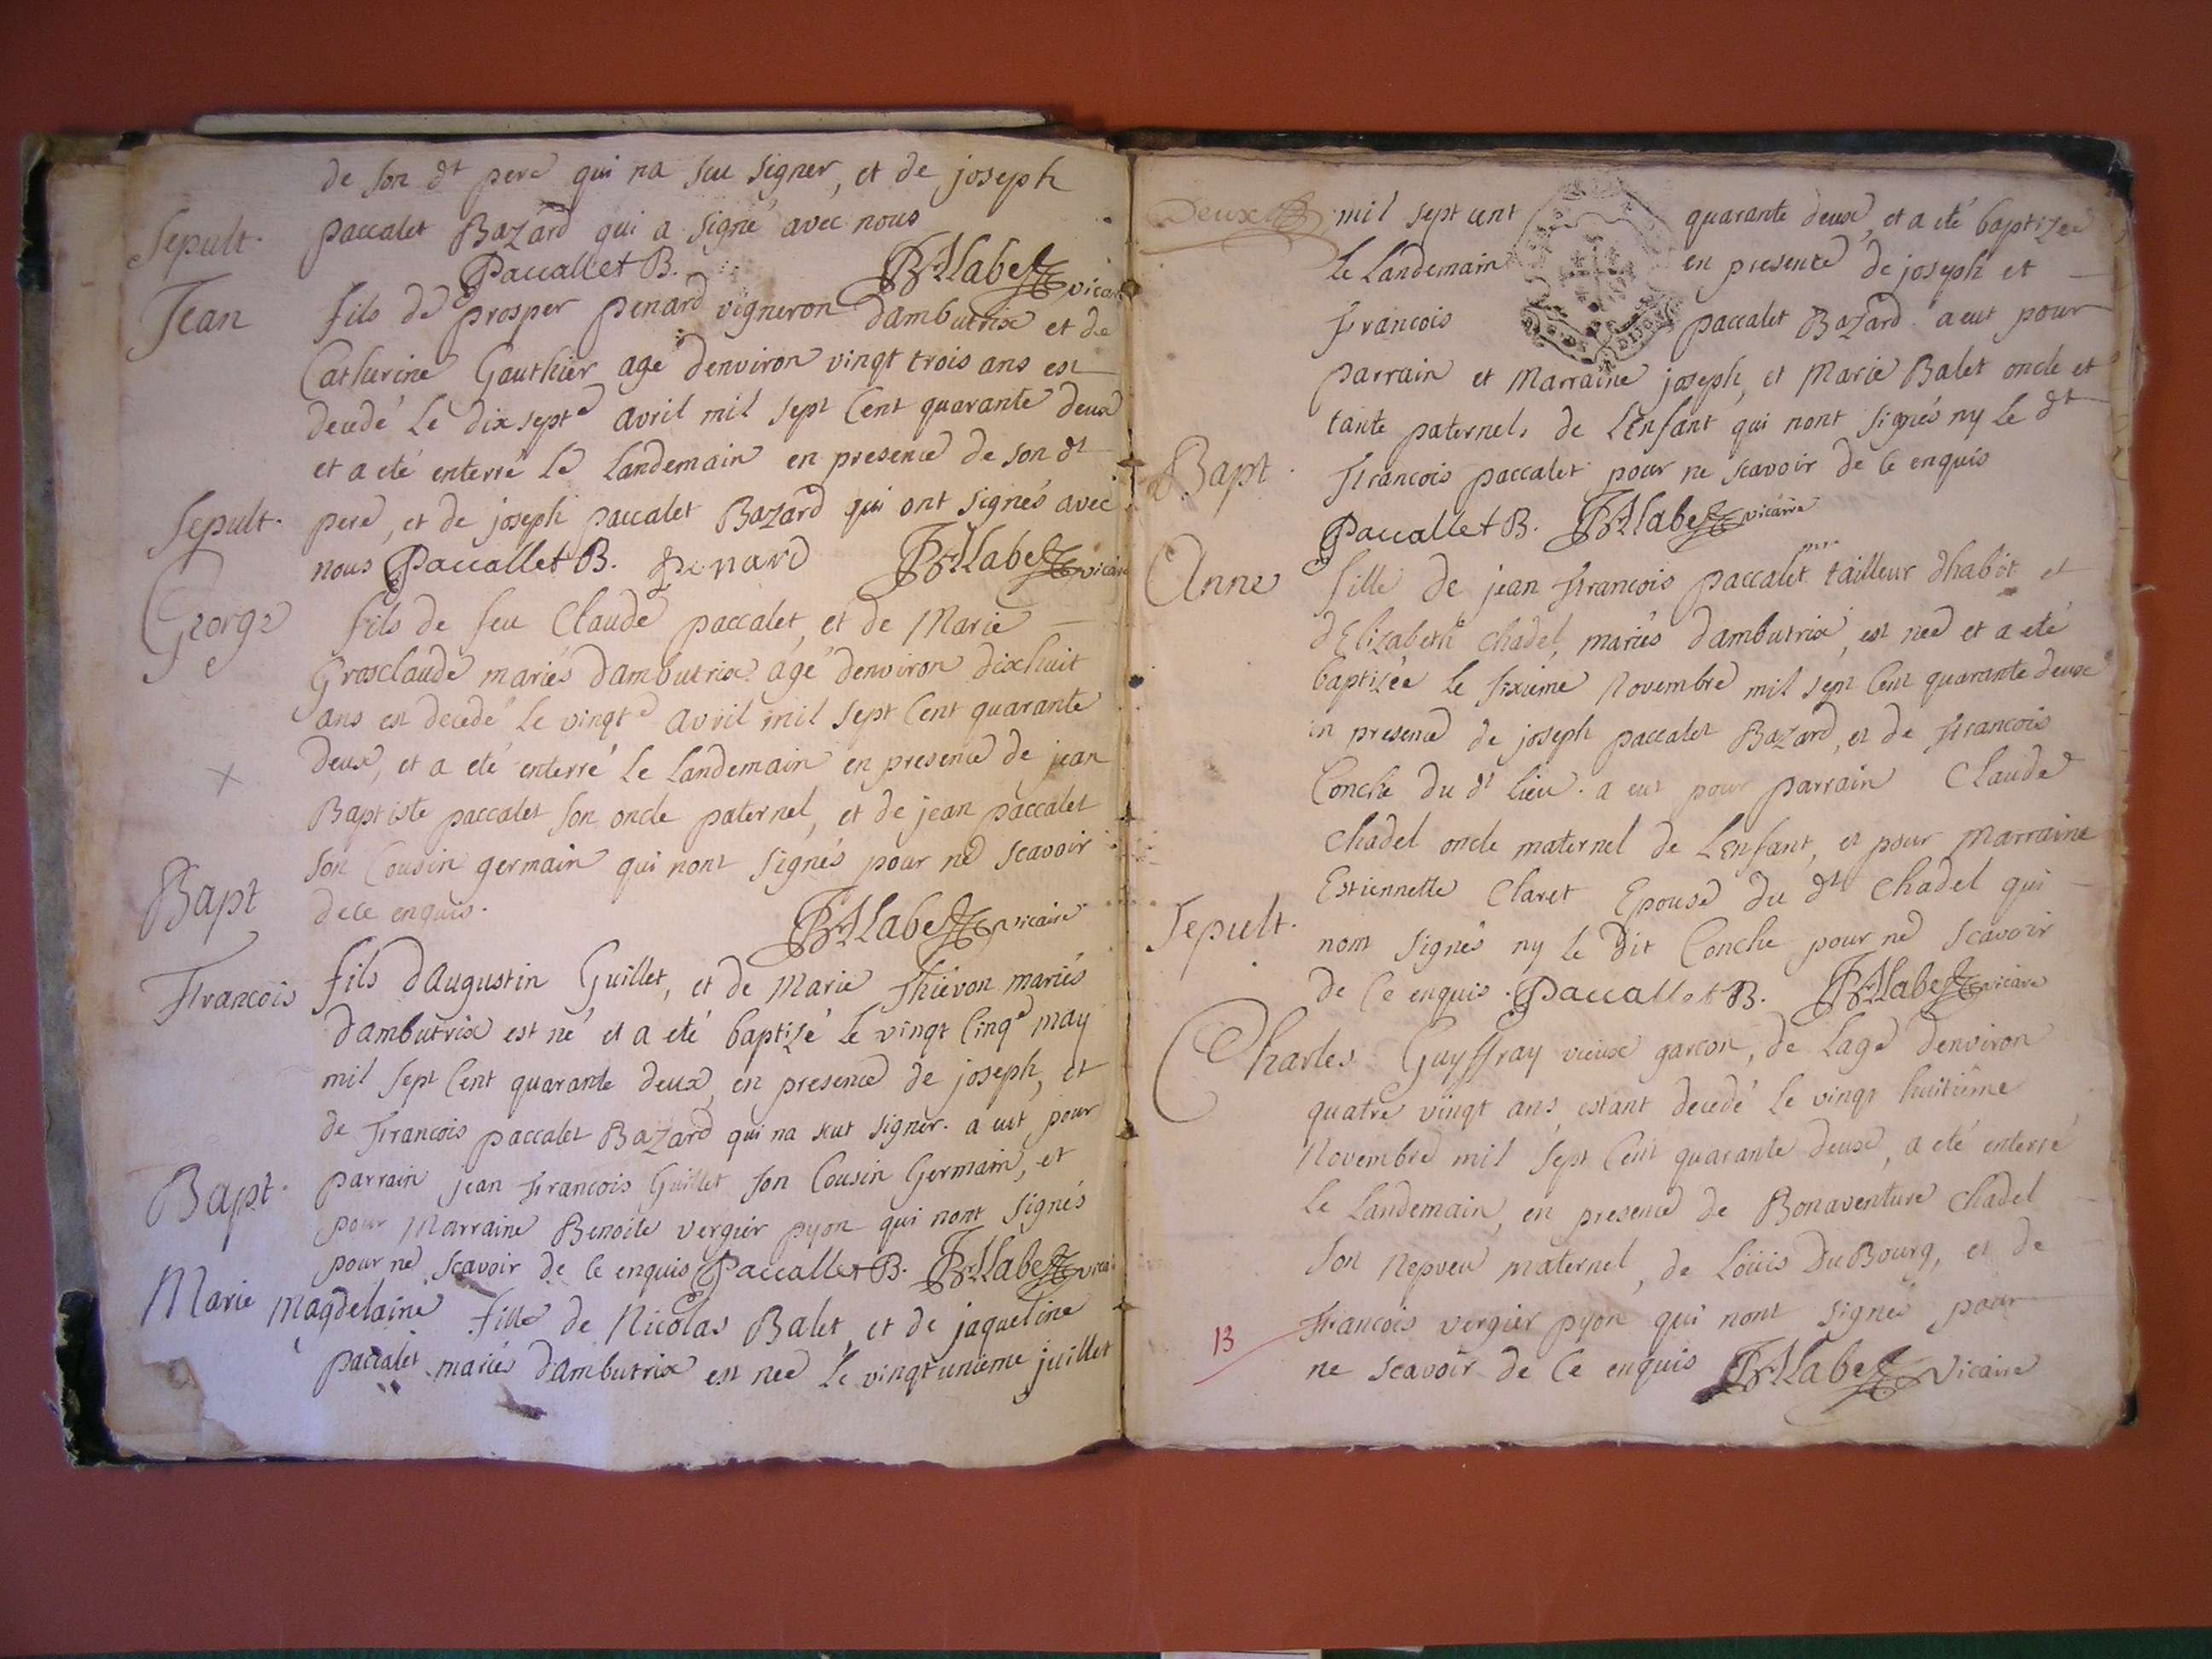 de son dt pere qui na sceu signer, et de joseph
Sepult. paccalet Bazard qui a signé avec nous
Paccallet B. vicaire
Jean fils de prosper penard vigneron dambutrix et de
Catherine Gauthier age denviron vingt trois ans est
decedé le dix septe avril mil sept Cent quarante deux
et a eté enterré le landemain en presence de son dt
Sepult. pere, et de joseph paccalet Bazard qui ont signés avec
nous Paccallet B. penard vicaire
George fils de feu Claude paccalet, et de Marie
Grosclaude mariés dambutrix agé denviron dixhuit
ans est decedé le vingte avril mil sept Cent quarante
deux, et a eté enterré le landemain en presence de jean
Baptiste paccalet son oncle paternel, et de jean paccalet
son Cousin germain qui nont signés pour ne scavoir
Bapt de ce enquis. vicaire
Francois fils dAugustin Guillet, et de Marie Thiévon mariés
dambutrix est né et a eté baptizé le vingt Cinqe may
mil sept Cent quarante deux, en presence de joseph, et
de Francois paccalet Bazard qui na scut signer. a eut pour
Bapt. parrain jean Francois Guillet son Cousin Germain, et
pour Marraine Benoite vergier pyon qui nont signés
pour ne scavoir de ce enquis Paccallet B. vicaire
Marie Magdelaine fille de Nicolas Balet, et de jaqueline
paccalet mariés dambutrix est nee le vingtunieme juillet
Deux mil sept cent quarante deux, et a eté baptizee
le landemain en presence de joseph et
francois paccalet Bazard a eut pour
parrain et Marraine joseph, et Marie Balet oncle et
tante paternels de LEnfant qui nont signés ny le dt
Bapt. Francois paccalet pour ne scavoir de ce enquis
Paccallet B. vicaire
Anne fille de jean Francois paccalet tailleur dhabit et
dElizabeth chadel, mariés dambutrix, est nee et a eté
baptizée le sixieme Novembre mil sept Cent quarante deux
en presence de joseph paccalet Bazard, et de Francois
Conche du dt lieu. a eut pour parrain Claude
chadel oncle maternel de LEnfant, et pour Marraine
Estiennette Claret Epouse du dt chadel qui
Sepult. nont signés ny le dit Conche pour ne scavoir
de ce enquis. Paccallet B. vicaire
Charles Guyffray vieux garcon, de lage denviron
quatre vingt ans, estant decedé le vingt huitiême
Novembre mil sept Cent quarante deux, a eté enterré
le landemain, en presence de Bonaventure chadel
son Nepveu maternel, de Loüis DuBourg, et de
Francois vergier pyon qui nont signés pour
13
ne scavoir de ce enquis Vicaire